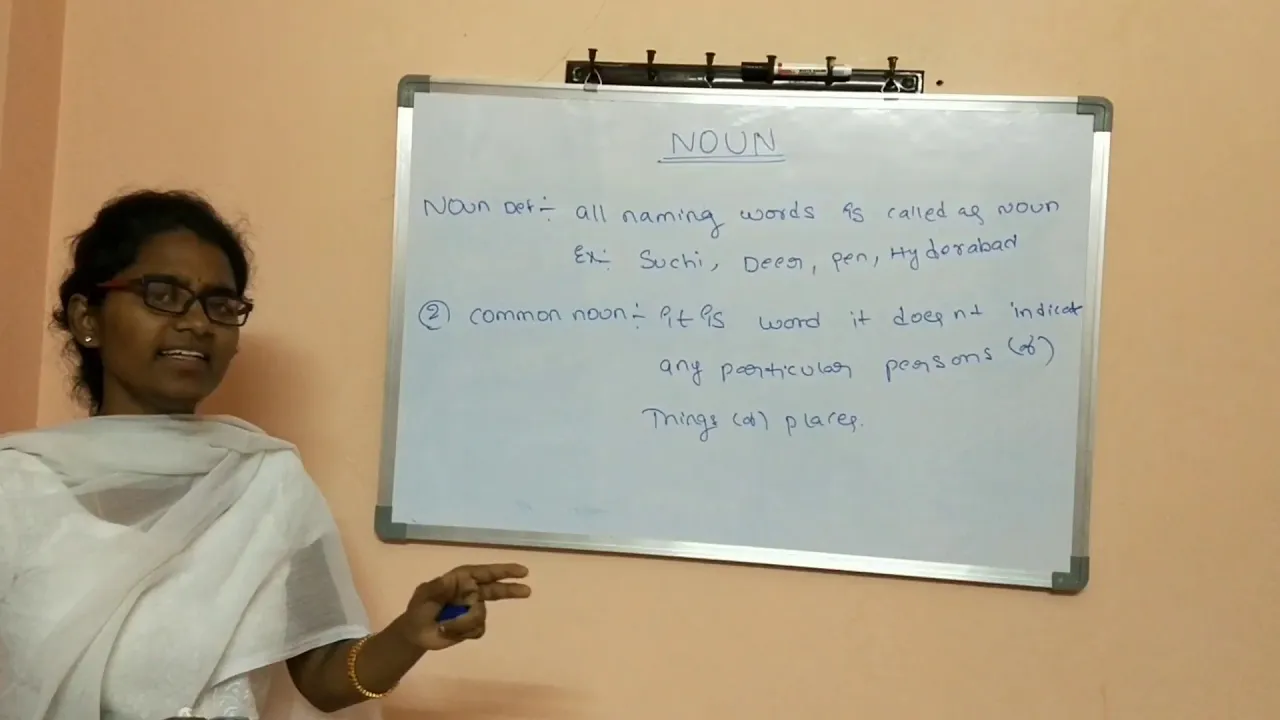 NOUN
NOUN Def:- all naming words is called as NOUN
Ex:- Suchi, Deer, pen, Hyderabad
② common noun:- it is word it doesnt indicat
any particular persons (or)
Things (or) places.